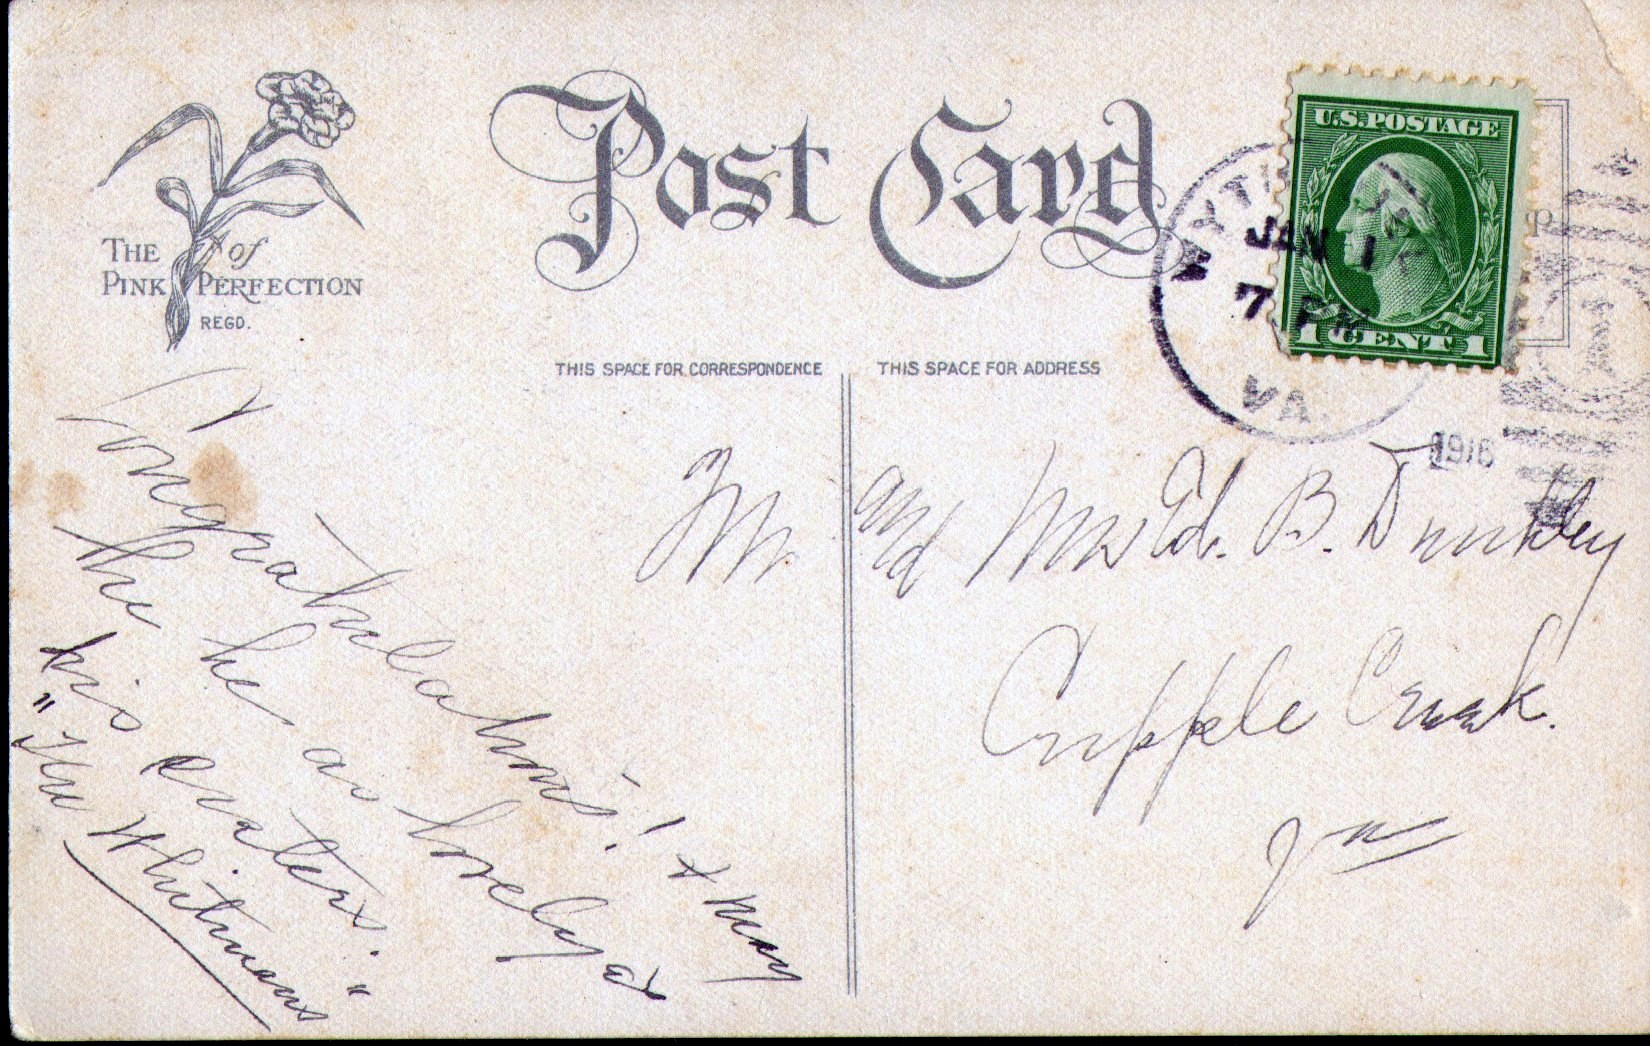 THE of
PINK PERFECTION
REGD.
Post Card
U.S. POSTAGE
1 CENT 1
WYTHE
JAN 1
7 PM
VA.
1916
THIS SPACE FOR CORRESPONDENCE
THIS SPACE FOR ADDRESS
Congratulations! & may
the he as lovely as
his sisters.
"The Whitmans"
Mr. and Mrs Ed. B. Dunkley
Cripple Creek.
Va